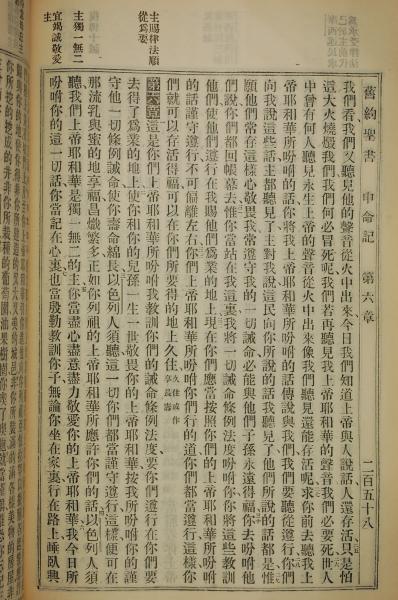 舊約聖書 申命記 第六章 二百五十八
我們看我們又聽見他的聲音從火中出來今日我們知道上帝與人說話人還存活只是怕
這大火燒燬我們我們何必冒死呢我們若再聽見我上帝耶和華的聲音我們必要死世人
中曾有何人聽見永生上帝的聲音從火中出來像我們聽見還能存活呢求你前去聽我上
帝耶和華所吩咐的話你將我上帝耶和華吩咐你的話傳說與我們我們要聽從遵行你們
向我說這些話主都聽見了主對我說這民向你所說的話我聽見了他們所說的話都是惟
願他們常存這樣心敬畏我常遵守我的一切誡命必能與他們子孫永遠得福你去吩咐他
們說你們都回帳幕去惟你當站在我這裏我將一切誡命條例法度吩咐你你將這些教訓
他們使他們遵行在我賜他們爲業的地上現在你們應當按照你們的上帝耶和華所吩咐
的話謹守遵行不可偏離左右你們上帝耶和華所吩咐你們行的道你們都當遵行這樣你
們就可以存活得福可以在你們所要得的地上久住久住或作享長壽
主賜律法順從爲要
第六章這是你們上帝耶和華所吩咐我教訓你們的誡命條例法度要你們遵行在你們要
去得了爲業的地上使你和你的兒孫一生一世敬畏你的上帝耶和華按我所吩咐你的謹
守他一切條例誡命使你壽命綿長以色列人須聽這一切你們都當謹守遵行這樣便可在
那流乳與蜜的地享福昌熾繁多正如你列祖的上帝耶和華所應許你們的話以色列人須
主獨一無二
聽我們上帝耶和華是獨一無二的主你當盡心盡意盡力敬愛你的上帝耶和華我今日所
宜竭誠敬愛主
吩咐你的這一切話你當記在心裏也當殷勤教訓你子無論你坐在家裏行在路上睡臥興